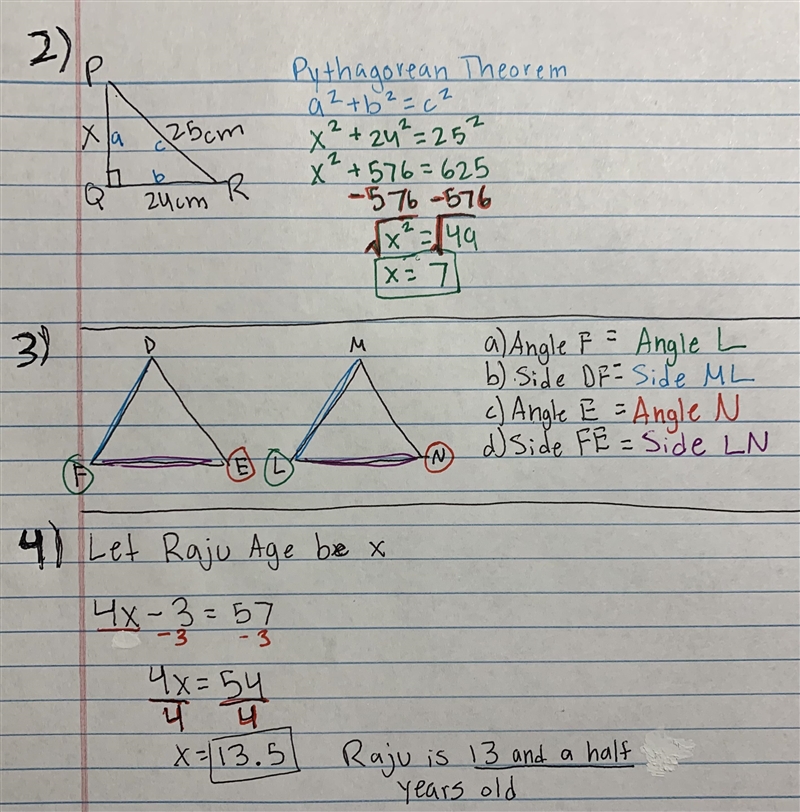 2)
P
X a c 25cm
b
Q 24cm R
Pythagorean Theorem
a² + b² = c²
x² + 24² = 25²
x² + 576 = 625
-576 -576
√x² = √49
x = 7
3)
D M
F E L N
a) Angle F = Angle L
b) Side DF = Side ML
c) Angle E = Angle N
d) Side FE = Side LN
4) Let Raju Age be x
4x - 3 = 57
-3 -3
4x = 54
4 4
x = 13.5 Raju is 13 and a half
years old